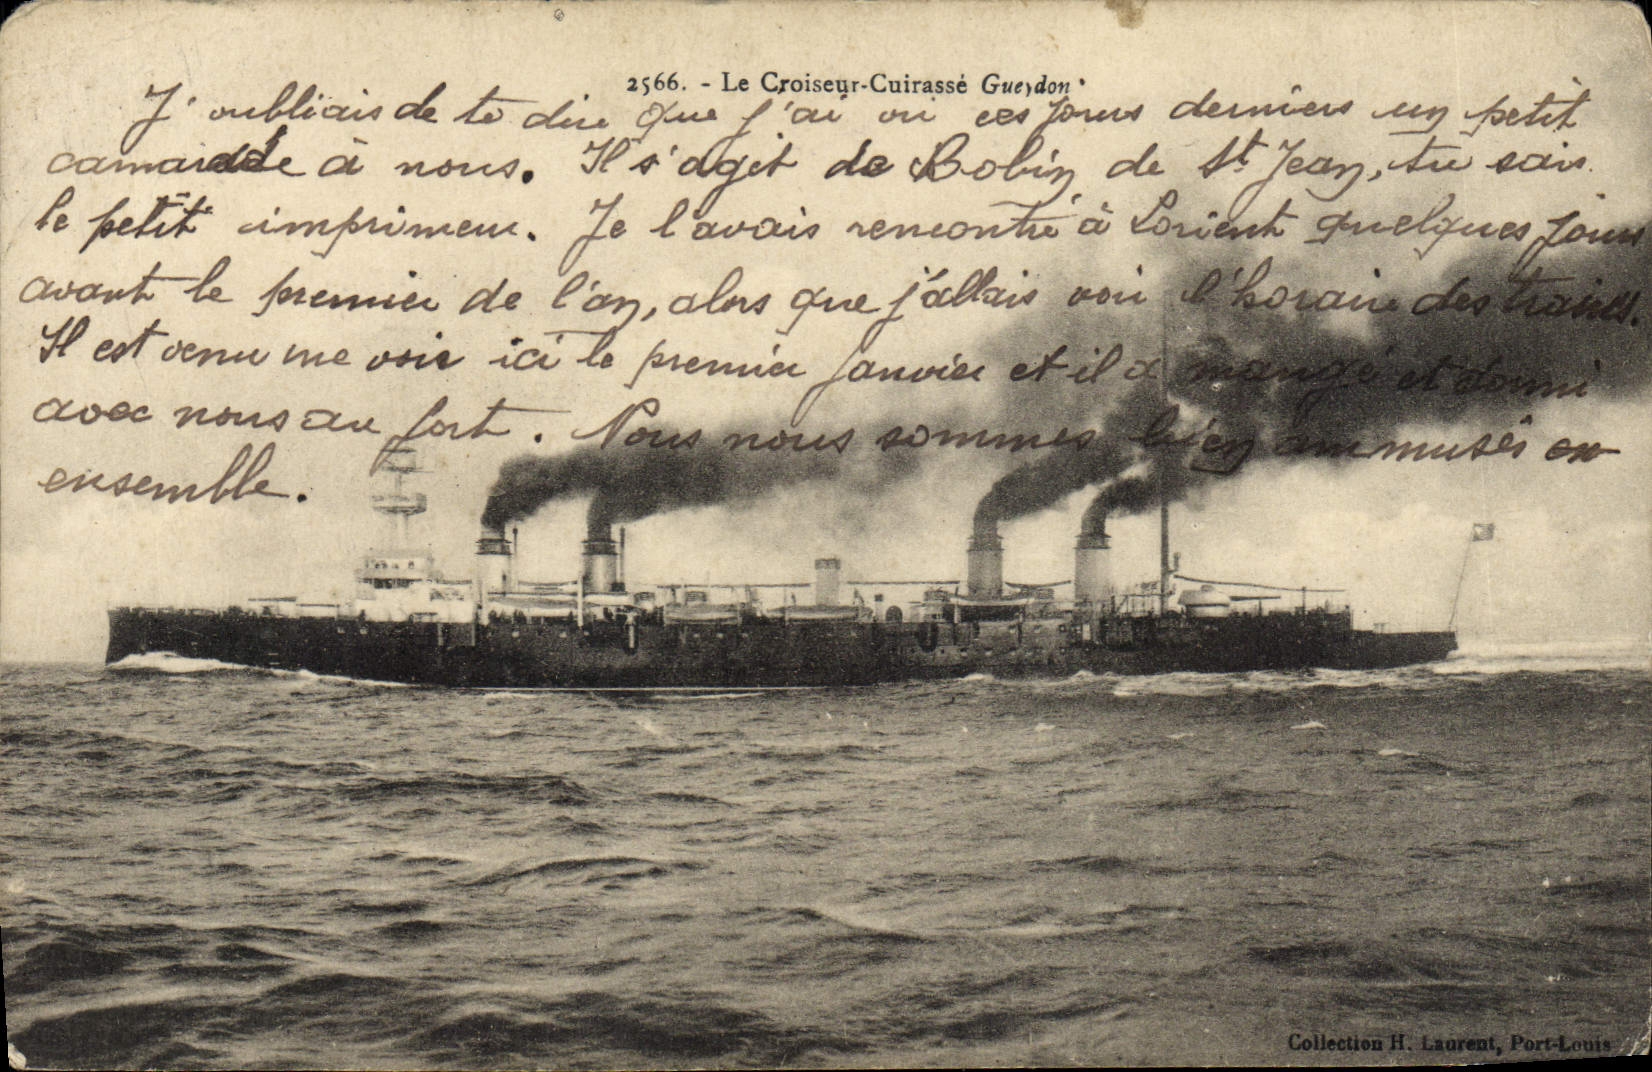 2566. - Le Croiseur-Cuirassé Gueydon
J'oubliais de te dire que j'ai vu ces jours derniers un petit
camarade à nous. Il s'agit de Bobin de St Jean, tu sais
le petit imprimeur. Je l'avais rencontré à Lorient quelques jours
avant le premier de l'an, alors que j'allais voir l'horaire des trains.
Il est venu me voir ici le premier janvier et il a mangé et dormi
avec nous au fort. Nous nous sommes bien ammusés
ensemble.
Collection H. Laurent, Port-Louis